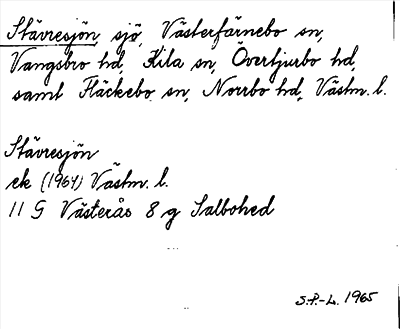 Stävresjön sjö, Västerfärnebo sn,
Vangsbro hd, Kila sn, Övertjurbo hd,
samt Fläckebo sn, Norrbo hd, Västm. l.
Stävresjön
ek (1964) Västm. l.
11 G Västerås 8 g Salbohed
S.P.-L. 1965